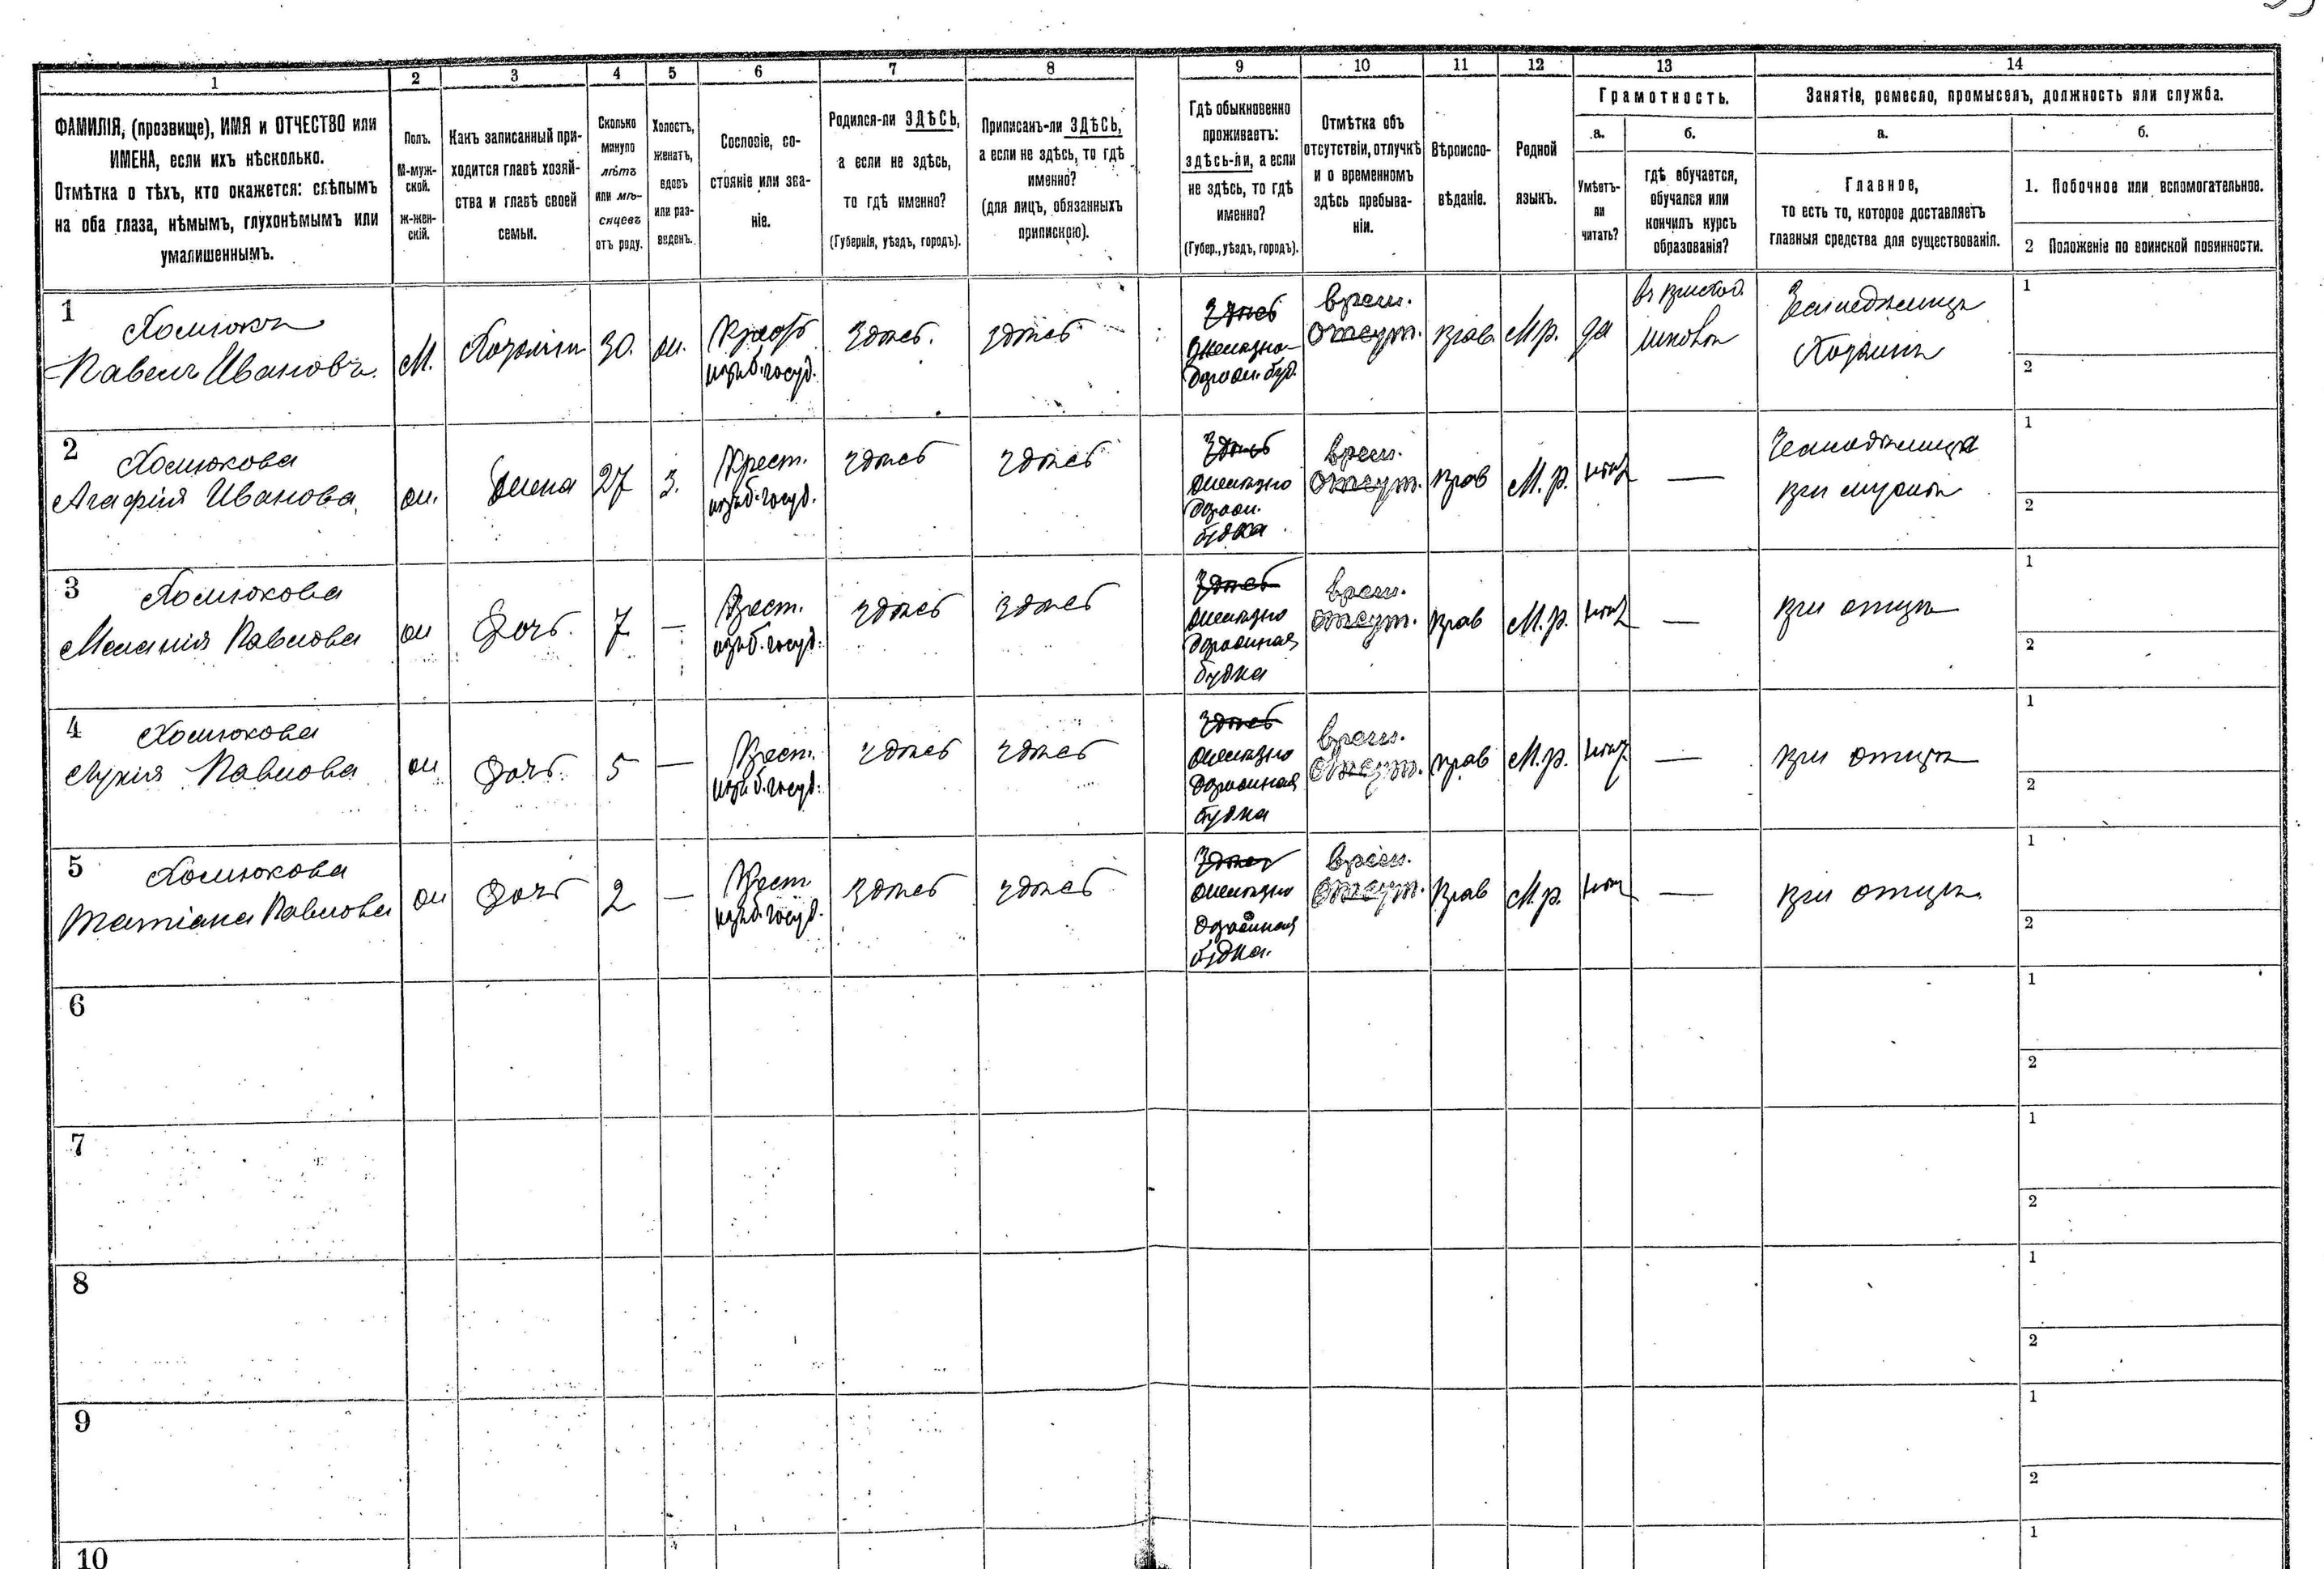 1 2 3 4 5 6 7 8 9 10 11 12 13 14
ФАМИЛІЯ, (прозвище), ИМЯ и ОТЧЕСТВО или
ИМЕНА, если ихъ нѣсколько.
Отмѣтка о тѣхъ, кто окажется: слѣпымъ
на оба глаза, нѣмымъ, глухонѣмымъ или
умалишеннымъ.
Полъ.
М-муж-
ской.
Ж-жен-
скій.
Какъ записанный при-
ходится главѣ хозяй-
ства и главѣ своей
семьи.
Сколько
минуло
лѣтъ
или мѣ-
сяцевъ
отъ роду.
Холостъ,
женатъ,
вдовъ
или раз-
веденъ.
Сословіе, со-
стояніе или зва-
ніе.
Родился-ли ЗДѢСЬ,
а если не здѣсь,
то гдѣ именно?
(Губернія, уѣздъ, городъ).
Приписанъ-ли ЗДѢСЬ,
а если не здѣсь, то гдѣ
именно?
(для лицъ, обязанныхъ
припискою).
Гдѣ обыкновенно
проживаетъ:
здѣсь-ли, а если
не здѣсь, то гдѣ
именно?
(Губер., уѣздъ, городъ).
Отмѣтка объ
отсутствіи, отлучкѣ
и о временномъ
здѣсь пребыва-
ніи.
Вѣроиспо-
вѣданіе.
Родной
языкъ.
Грамотность.
а.
Умѣетъ-
ли
читать?
б.
гдѣ обучается,
обучался или
кончилъ курсъ
образованія?
Занятіе, ремесло, промыселъ, должность или служба.
а.
Главное,
то есть то, которое доставляетъ
главныя средства для существованія.
б.
1. Побочное или вспомогательное.
2 Положеніе по воинской повинности.
1
Хомюкъ
Павелъ Ивановъ.
М.
Хозяинъ
30.
ж.
Крест
изъ б. госуд.
Здѣсь.
здѣсь
Здѣсь
Желѣзно-
дорож. буд.
врем.
отсут.
прав.
М.р.
да
школѣ
Земледѣлецъ
Хозяинъ
1
2
2
Хомюкова
Агафія Иванова
ж.
Жена
27
З.
Крест.
изъ б. госуд.
здѣсь
здѣсь
Здѣсь
желѣзно
дорож.
будка
врем.
отсут.
прав
М.р.
нѣтъ
—
Земледѣлица
при мужѣ
1
2
3
Хомюкова
Меланія Павлова
ж
Дочь.
7
—
Крест.
изъ б. госуд.
здѣсь
здѣсь
Здѣсь
желѣзно
дорожная
будка
врем.
отсут.
прав
М.р.
нѣтъ
—
при отцѣ
1
2
4
Хомюкова
Лукія Павлова
ж
Дочь.
5
—
Крест.
изъ б. госуд.
здѣсь
здѣсь
Здѣсь
желѣзно
дорожная
будка
врем.
отсут.
прав
М.р.
нѣтъ
—
при отцѣ
1
2
5
Хомюкова
Татіана Павлова
ж
Дочь
2
—
Крест.
изъ б. госуд.
здѣсь
здѣсь
Здѣсь
желѣзно
дорожная
будка.
врем.
отсут.
прав
М.р.
нѣтъ
—
при отцѣ.
1
2
6
1
2
7
1
2
8
1
2
9
1
2
10
1